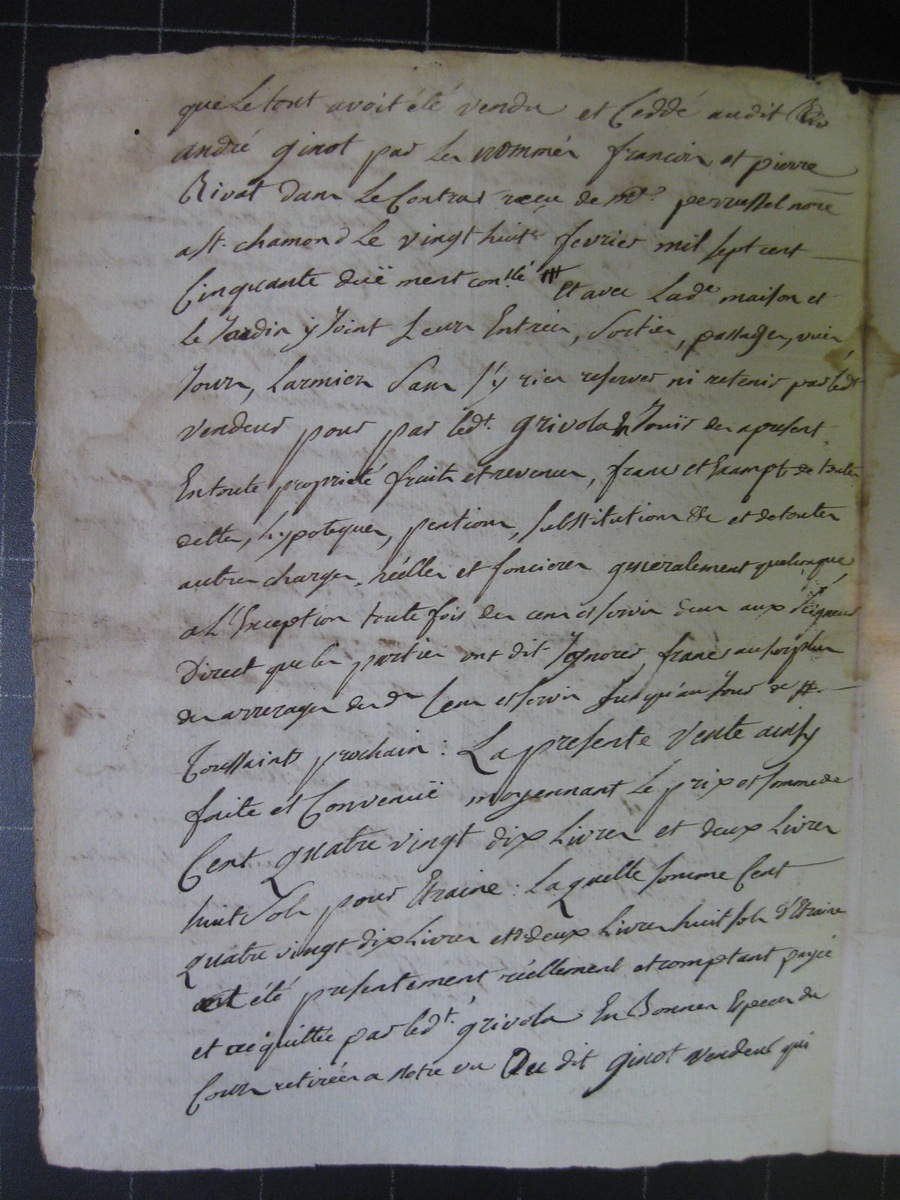 que Le tout avoit été vendu et Ceddé audit
andré ginot par Les nommés francois et pierre
Rivat dans Le Contrat receu de Me. perrussel nore
a st. chamond Le vingt huite fevrier mil sept cent
Cinquante duëment conlé Et avec Lade maison et
Le Jardin y Joint Leurs Entrées, Sorties, passages, vües
Jours, Larmiers Sans s'y rien reserver ni retenir par ledt
vendeur pour par ledt. grivolas Jouir des apresent
En toute propriété fruits et revenus, franc et Exampt de toutes
dettes, hypoteques, pentions, substitutions &c et de toutes
autres charges réelles et foncieres generalement quelconque
a L'Exception toute fois des cens et servis deus aux Seigneurs
Direct que les parties ont dit Ignorer, franc au surplus
des arrerages des ds Cens et servis Jusqu'au Jour de
Toussaints prochain : La presente vente ainsy
faite et Convenuë moyennant Le prix et somme de
Cent Quatre vingt dix Livres et deux Livres
huit Sols pour Etraine : Laquelle somme Cent
Quatre vingt dix Livres et deux Livres huit sols d'Etraine
ont été presentement réellement et comptant payée
et acquittée par ledt. grivolas En Bonnes Especes de
Cours retirées a notre vu Du dit ginot vendeur qui